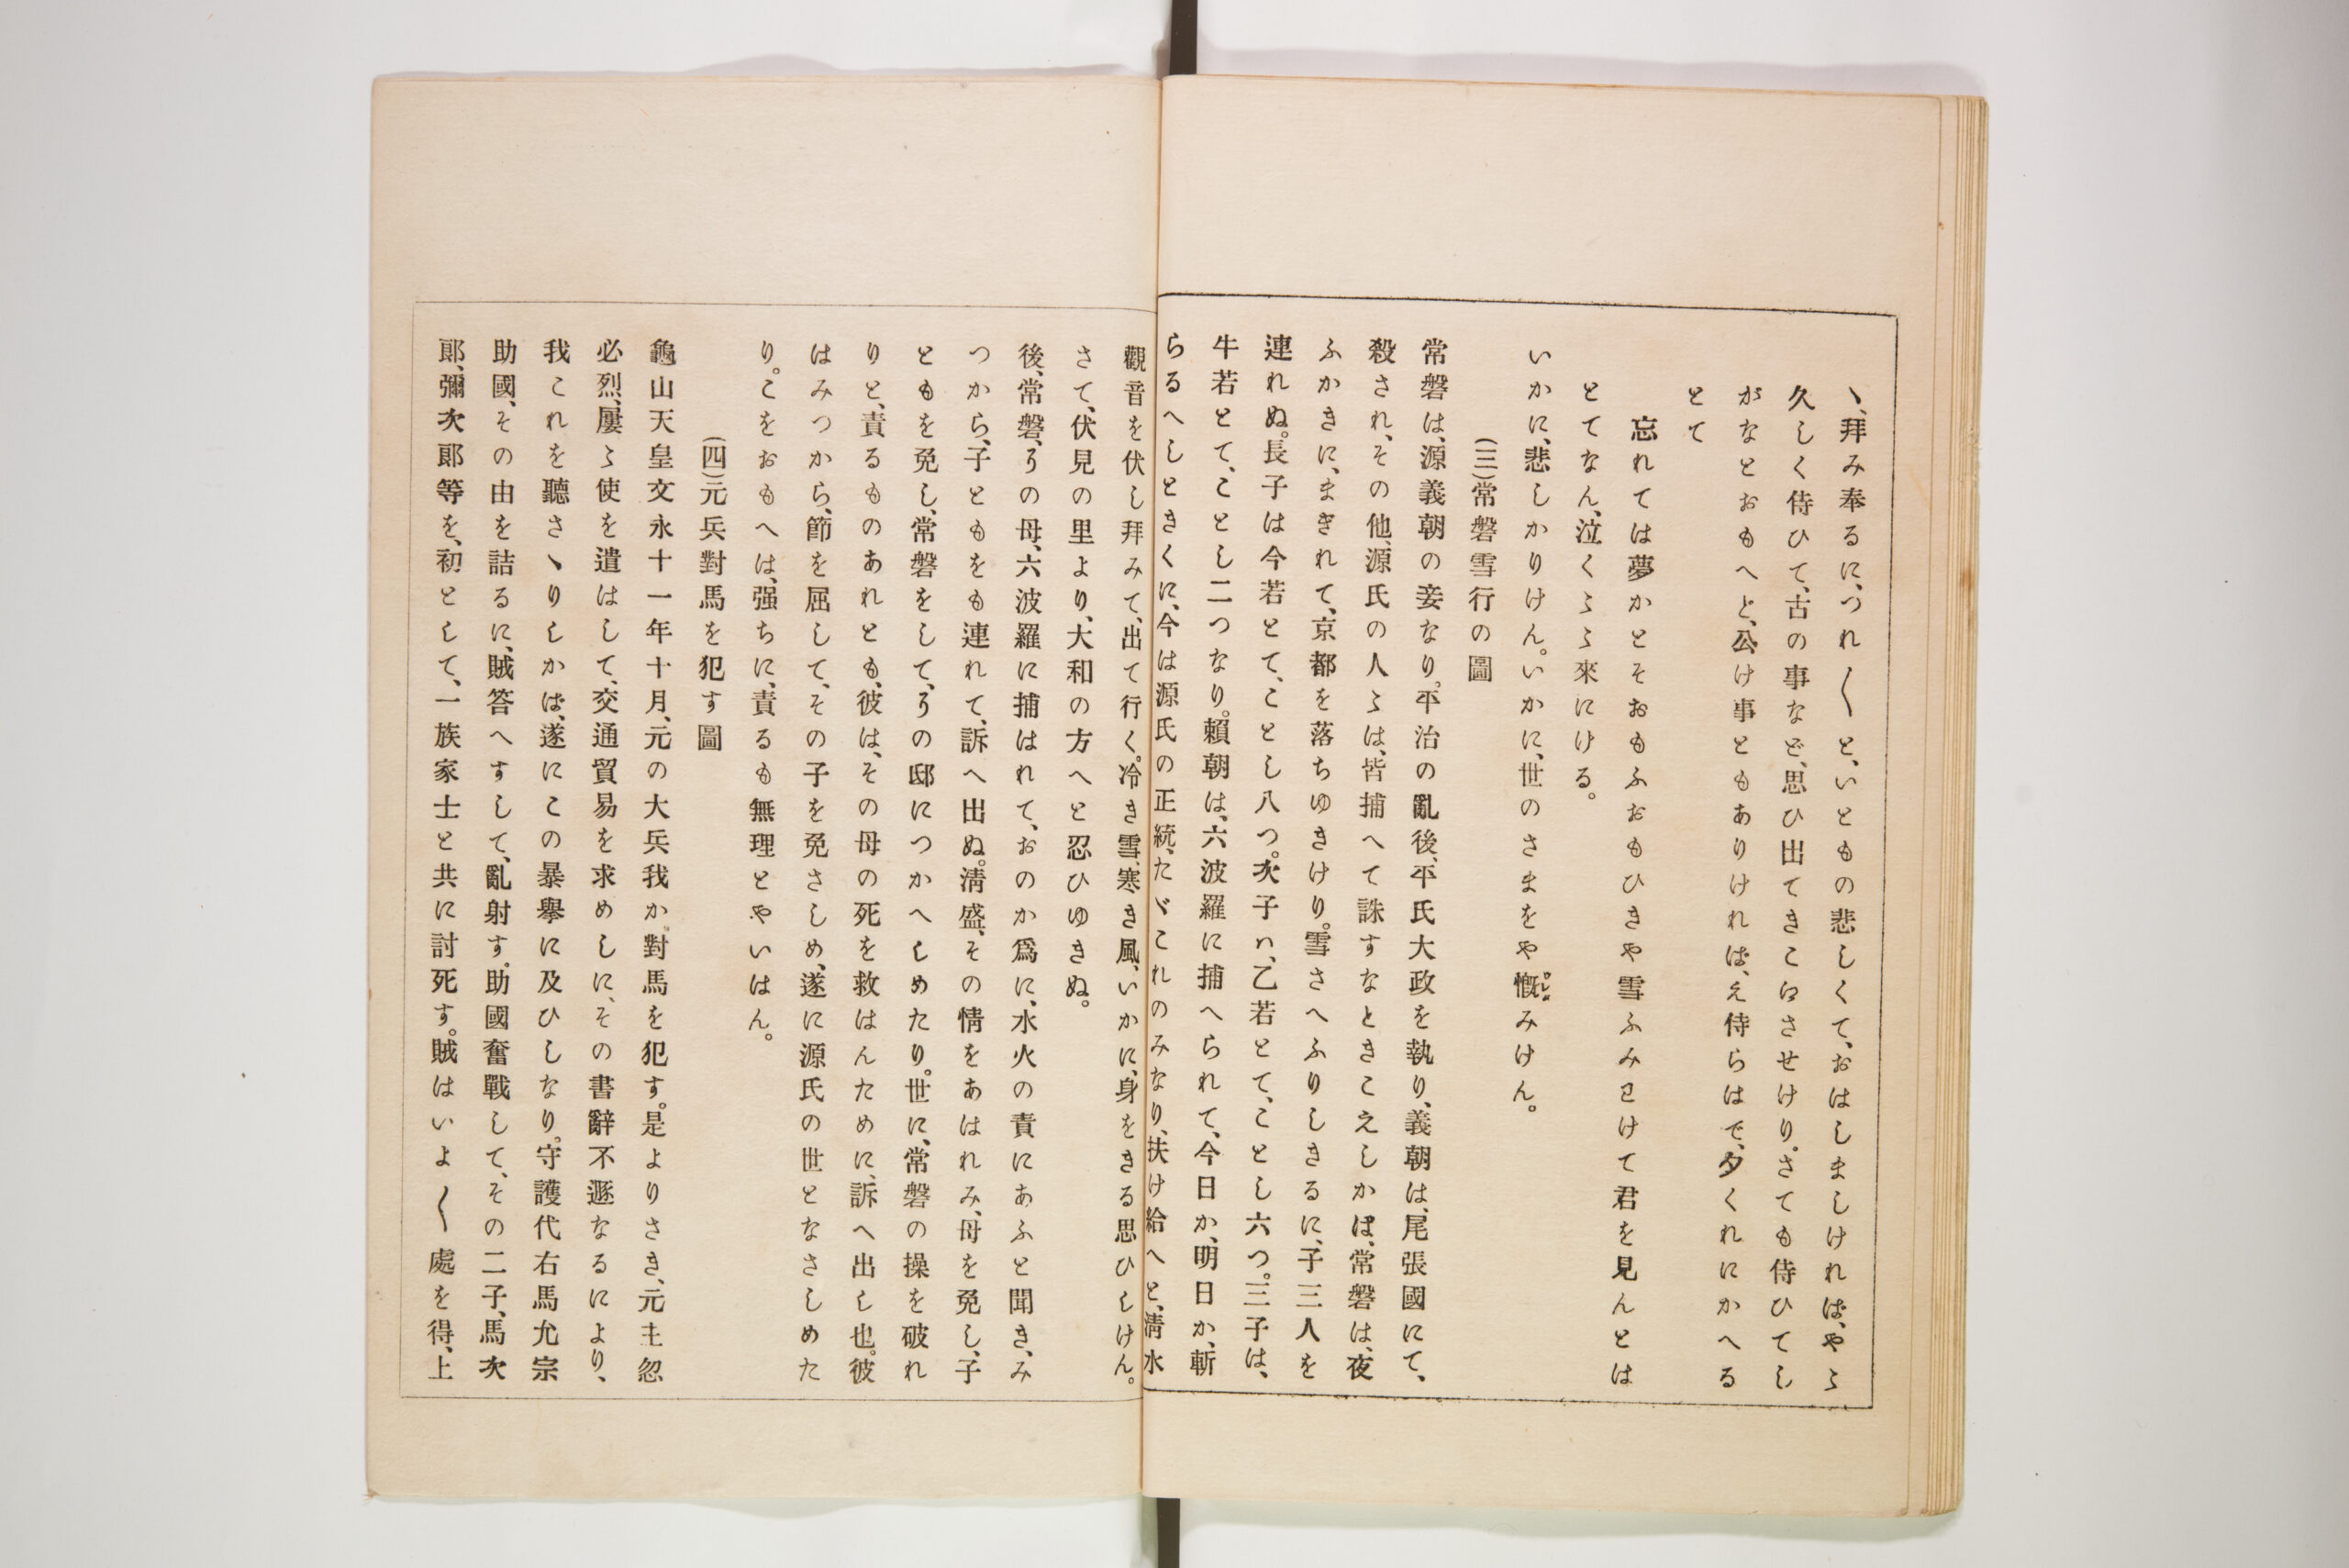 ヽ、拜み奉るに、つれ〱と、いともの悲しくて、おはしましければ、やゝ
久しく侍ひて、古の事など、思ひ出てきこはさせけり。さても侍ひてし
がなとおもへと、公け事ともありければ、え侍らはで、夕くれにかへる
とて
忘れては夢かとそおもふおもひきや雪ふみわけて君を見んとは
とてなん、泣くゝゝ來にける。
いかに、悲しかりけん。いかに、世のさまをや慨みけん。
(三)常磐雪行の圖
常磐は、源義朝の妾なり。平治の亂後、平氏大政を執り、義朝は、尾張國にて、
殺され、その他、源氏の人ゝは、皆捕へて誅すなときこえしかば、常磐は、夜
ふかきに、まぎれて、京都を落ちゆきけり。雪さへふりしきるに、子三人を
連れぬ。長子は今若とて、ことし八つ。次子ハ、乙若とて、ことし六つ。三子は、
牛若とて、ことし二つなり。賴朝は、六波羅に捕へられて、今日か、明日か、斬
らるへしときくに、今は源氏の正統、たゞこれのみなり、扶け給へと、淸水
觀音を伏し拜みて、出て行く。冷き雪、寒き風、いかに、身をきる思ひしけん。
さて、伏見の里より、大和の方へと忍ひゆきぬ。
後、常磐、うの母、六波羅に捕はれて、おのか爲に、水火の責にあふと聞き、み
つから、子ともをも連れて、訴へ出ぬ。淸盛、その情をあはれみ、母を免し、子
ともを免し、常磐をして、うの邸につかへしめたり。世に、常磐の操を破れ
りと、責るものあれとも、彼は、その母の死を救はんために、訴へ出し也。彼
はみつから、節を屈して、その子を免さしめ、遂に源氏の世となさしめた
り。こをおもへは、强ちに、責るも無理とやいはん。
(四)元兵對馬を犯す圖
龜山天皇文永十一年十月、元の大兵我か對馬を犯す。是よりさき、元主忽
必烈、屢ゝ使を遣はして、交通貿易を求めしに、その書辭不遜なるにより、
我これを聽さヽりしかば、遂にこの暴擧に及ひしなり。守護代右馬允宗
助國、その由を詰るに、賊答へすして、亂射す。助國奮戰して、その二子、馬次
郞、彌次郞等を、初として、一族家士と共に討死す。賊はいよ〱處を得、上